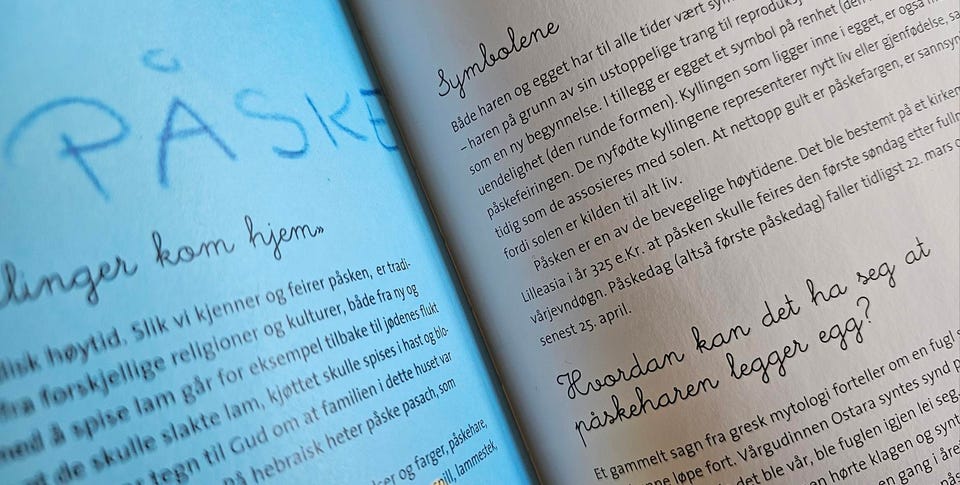 PÅSKE
linger kom hjem»
disk høytid. Slik vi kjenner og feirer påsken, er tradi-
fra forskjellige religioner og kulturer, både fra ny og
med å spise lam går for eksempel tilbake til jødenes flukt
de skulle slakte lam, kjøttet skulle spises i hast og blo-
tegn til Gud om at familien i dette huset var
på hebraisk heter påske pasach, som
og farger, påskehare,
lammestek,
Symbolene
Både haren og egget har til alle tider vært
– haren på grunn av sin ustoppelige trang til
som en ny begynnelse. I tillegg er egget et symbol på renhet
uendelighet (den runde formen). Kyllingen som ligger inne i egget, er også
påskefeiringen. De nyfødte kyllingene representerer nytt liv eller gjenfødelse,
tidig som de assosieres med solen. At nettopp gult er påskefargen, er
fordi solen er kilden til alt liv.
Påsken er en av de bevegelige høytidene. Det ble bestemt på et
Lilleasia i år 325 e.Kr. at påsken skulle feires den første søndag etter
vårjevndøgn. Påskedag (altså første påskedag) faller tidligst 22. mars
senest 25. april.
Hvordan kan det ha seg at
påskeharen legger egg?
Et gammelt sagn fra gresk mytologi forteller om en fugl
løpe fort. Vårgudinnen Ostara syntes synd
det ble vår, ble fuglen igjen lei seg
hørte klagen og
en gang i